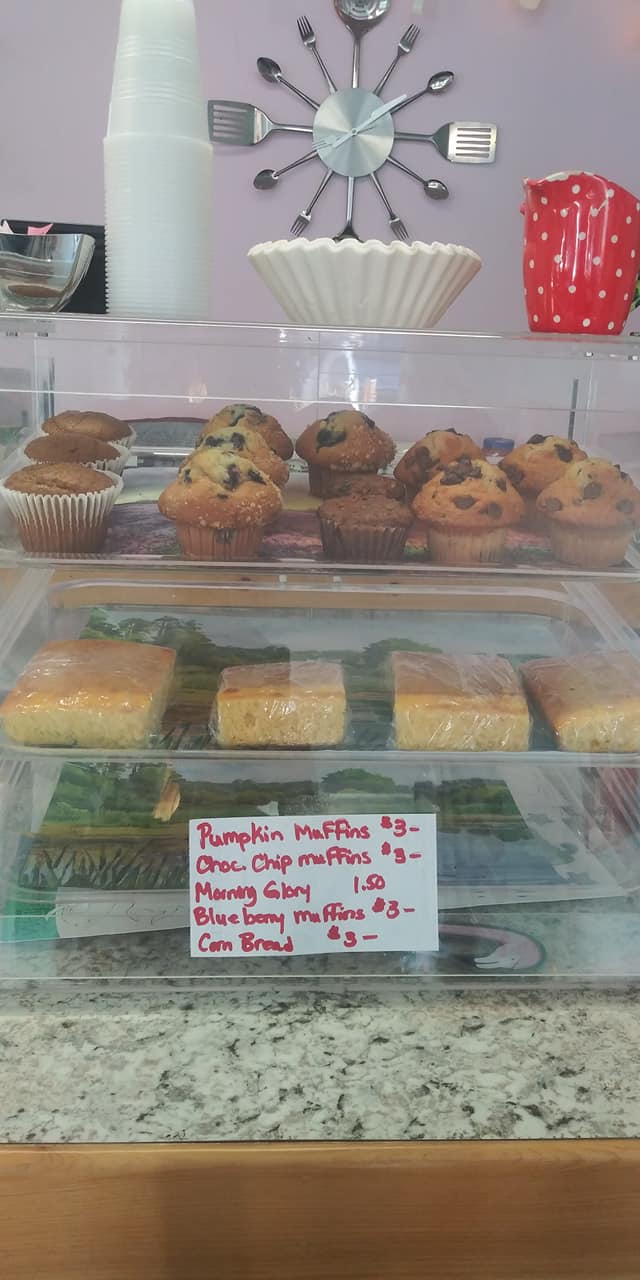 Pumpkin Muffins $3-
Choc. Chip muffins $3-
Morning Glory 1.50
Blueberry muffins $3-
Corn Bread $3-